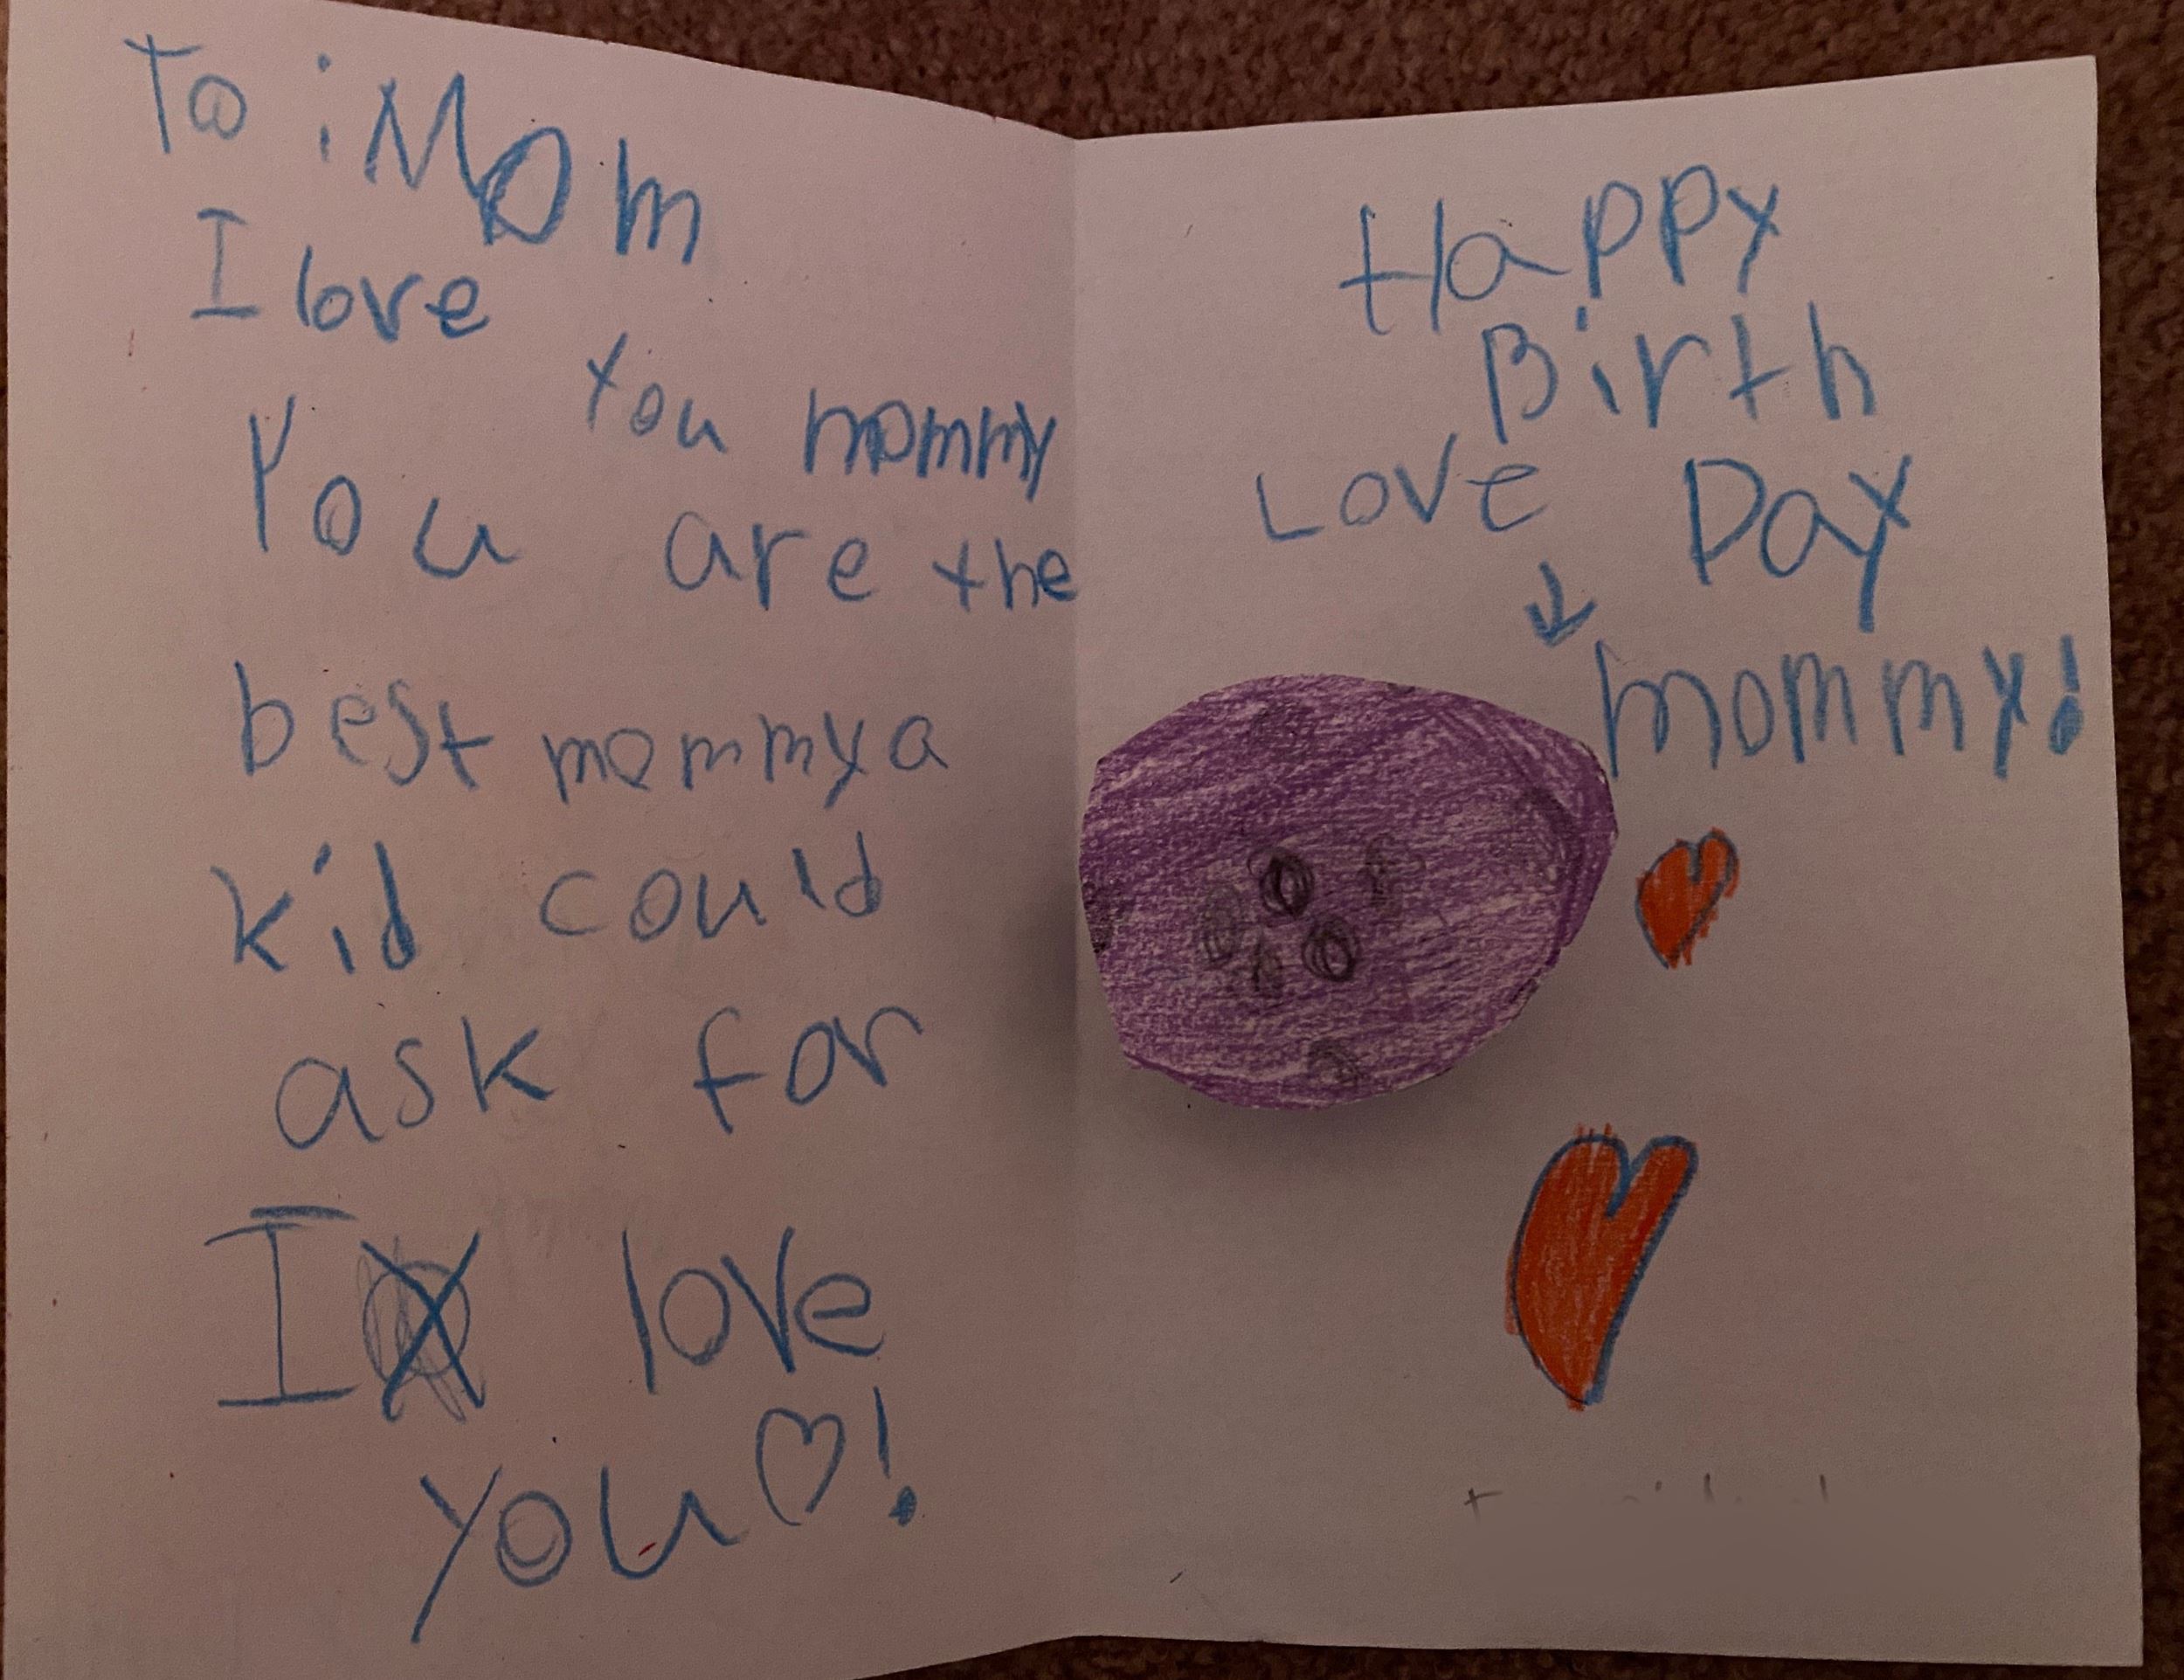 To: Mom
I love
You mommy
You are the
best mommy a
kid could
ask for
I love
you♡!
Happy
Birth
Day
mommy!
Love
↓